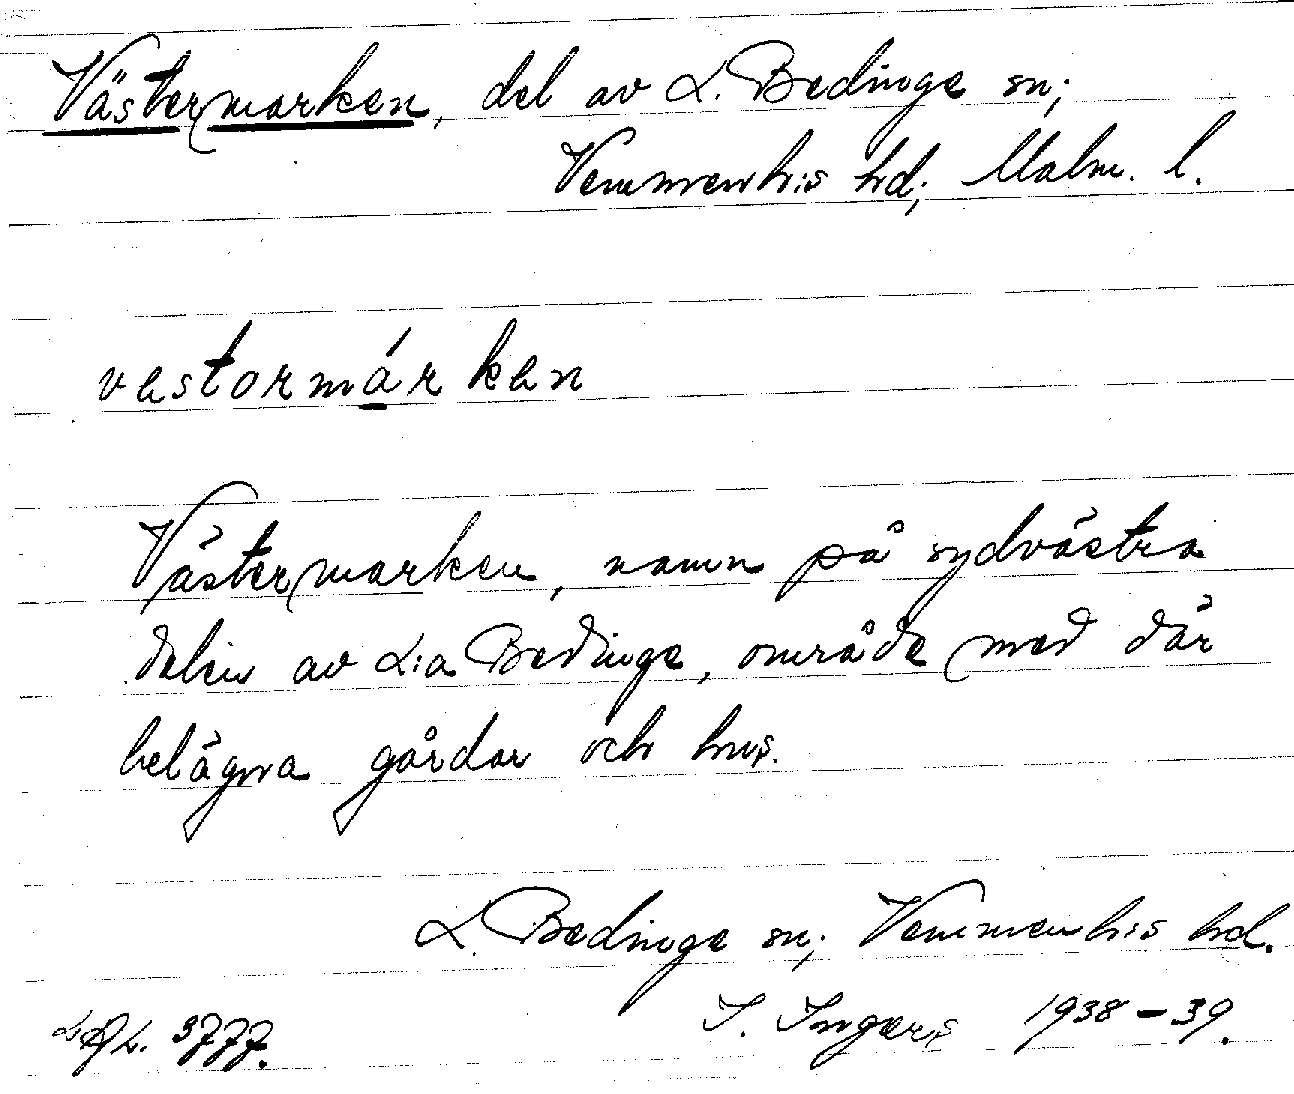 Västermarken, del av L. Bedinge sn;
Vemmenh:s hd; Malm. l.
vestormárken
Västermarken, namn på sydvästra
delen av L:a Bedinge, område med där
belägna gårdar och hus.
L. Bedinge sn; Vemmenh:s hd.
I. Ingers 1938–39.
3777.